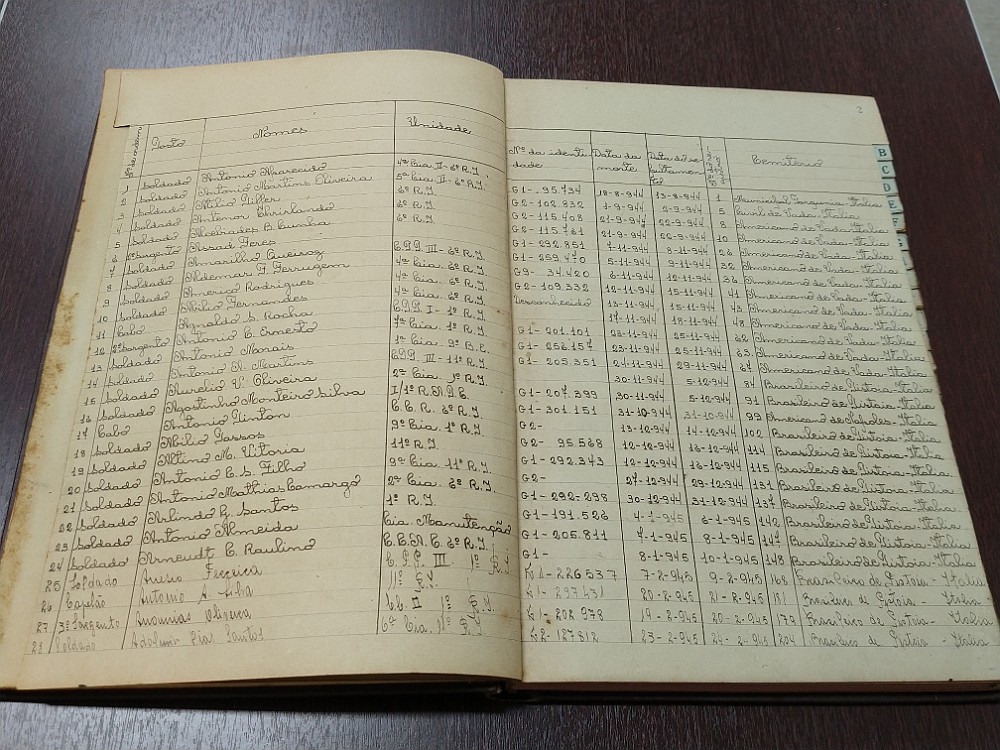 2
Nº de ordem Posto Nomes Unidade Nº da identidade Data da morte Data do sepultamento Cemitério
B
C
D
E
F
1 Soldado Antonio Aparecido 4ª Cia. II-6º R.I. G1-.95.734 18-8-944 13-8-944 1 Municipal Tarquinia-Italia
2 Soldado Antonio Martins Oliveira 5ª Cia II-6º R.I. G2-102.932 1-9-944 2-9-944 5 Civil de Vada-Italia
3 Soldado Atilio Piffer 6º R.I. G2-115.408 21-9-944 22-9-944 8 Americano de Vada-Italia
4 Soldado Antenor Ghirlanda 6º R.I. G2-115.761 21-9-944 10 Americano de Vada-Italia
5 Soldado Alcebiades B. Cunha G1-292.851 7-11-944 8-11-944 26 Americano de Vada-Italia
6 Sargento Assad Feres G1-259.470 5-11-944 9-11-944 32 Americano de Vada-Italia
7 Soldado Amarilho Queiroz C.P.P. III-6º R.I. G9-34.420 6-11-944 12-11-944 36 Americano de Vada-Italia
8 Soldado Aldemar F. Ferrugem G2-109.332 13-11-944 15-11-944 41 Americano de Vada-Italia
9 Soldado Americo Rodrigues Desconhecido 13-11-944 15-11-944 43 Americano de Vada-Italia
10 Soldado Abilio Fernandes 17-11-944 18-11-944 48 Americano de Vada-Italia
11 Cabo Agnaldo S. Rocha C.P.P. I-1º R.I. G1-201.101 23-11-944 25-11-944 Americano de Vada-Italia
12 2º Sargento Antonio C. Ernesto 7ª Cia. 1º R.I. G1-256.157 23-11-944 25-11-944 63 Americano de Vada-Italia
13 Soldado Antonio Morais 1ª Cia. 9º B.E. G1-205.351 24-11-944 29-11-944 67 Americano de Vada-Italia
14 Soldado Antonio N. Martins C.P.P. III-11º R.I. 30-11-944 5-12-944 Brasileiro de Pistoia-Italia
15 Soldado Aurelio V. Oliveira 2ª Cia. 1º R.I. G1-207.399 30-11-944 5-12-944 91 Brasileiro de Pistoia-Italia
16 Soldado Agostinho Monteiro Silva G1-301.151 31-10-944 31-10-944 99 Americano de Napoles-Italia
17 Cabo Antonio Pinton C.C.R. 6º R.I. G2- 13-12-944 14-12-944 102 Brasileiro de Pistoia-Italia
18 Soldado Abilio Passos 9ª Cia. 1º R.I. G2- 95.568 12-12-944 16-12-944 114 Brasileiro de Pistoia-Italia
19 Soldado Altino M. Vitoria 11º R.I. G1-292.343 12-12-944 16-12-944 115 Brasileiro de Pistoia-Italia
20 Soldado Antonio C. S. Filho 9ª Cia. 11º R.I. G2- 27-12-944 29-12-944 131 Brasileiro de Pistoia-Italia
21 Soldado Antonio Mathias Camargo 2ª Cia. 6º R.I. G1-292-298 30-12-944 31-12-944 137 Brasileiro de Pistoia-Italia
22 Soldado Arlindo G. Santos 1º R.I. G1-191.526 4-1-945 6-1-945 142 Brasileiro de Pistoia-Italia
23 Soldado Antonio Almeida Cia. Manutenção G1-205.811 7-1-945 8-1-945 147 Brasileiro de Pistoia-Italia
24 Soldado Arneudt C. Raulino 6º R.I. G1- 8-1-945 10-1-945 148 Brasileiro de Pistoia-Italia
25 Soldado Aureo Ferreira C.P.P. III 1º R.I. G1-226537 7-2-945 9-2-945 168 Brasileiro de Pistoia-Italia
26 Capelão Antonio A. Silva 11º R.I. G1-297431 20-2-945 21-2-945 181 Brasileiro de Pistoia-Italia
27 3º Sargento Ananias Oliveira II 1º R.I. G1-202978 19-2-945 20-2-945 179 Brasileiro de Pistoia-Italia
28 Soldado Adelmir Dias Santos 6ª Cia. 11º R.I. G2-127812 23-2-945 24-2-945 204 Brasileiro de Pistoia-Italia